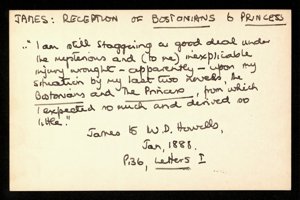 JAMES: RECEPTION OF BOSTONIANS & PRINCESS
.. "I am still staggering a good deal under
the mysterious and (to me) inexplicable
injury wrought – apparently – upon my
situation by my last two novels, the
Bostonians and The Princess, from which
I expected so much and derived so
little."
James to W.D. Howells,
Jan, 1888.
P136, Letters I